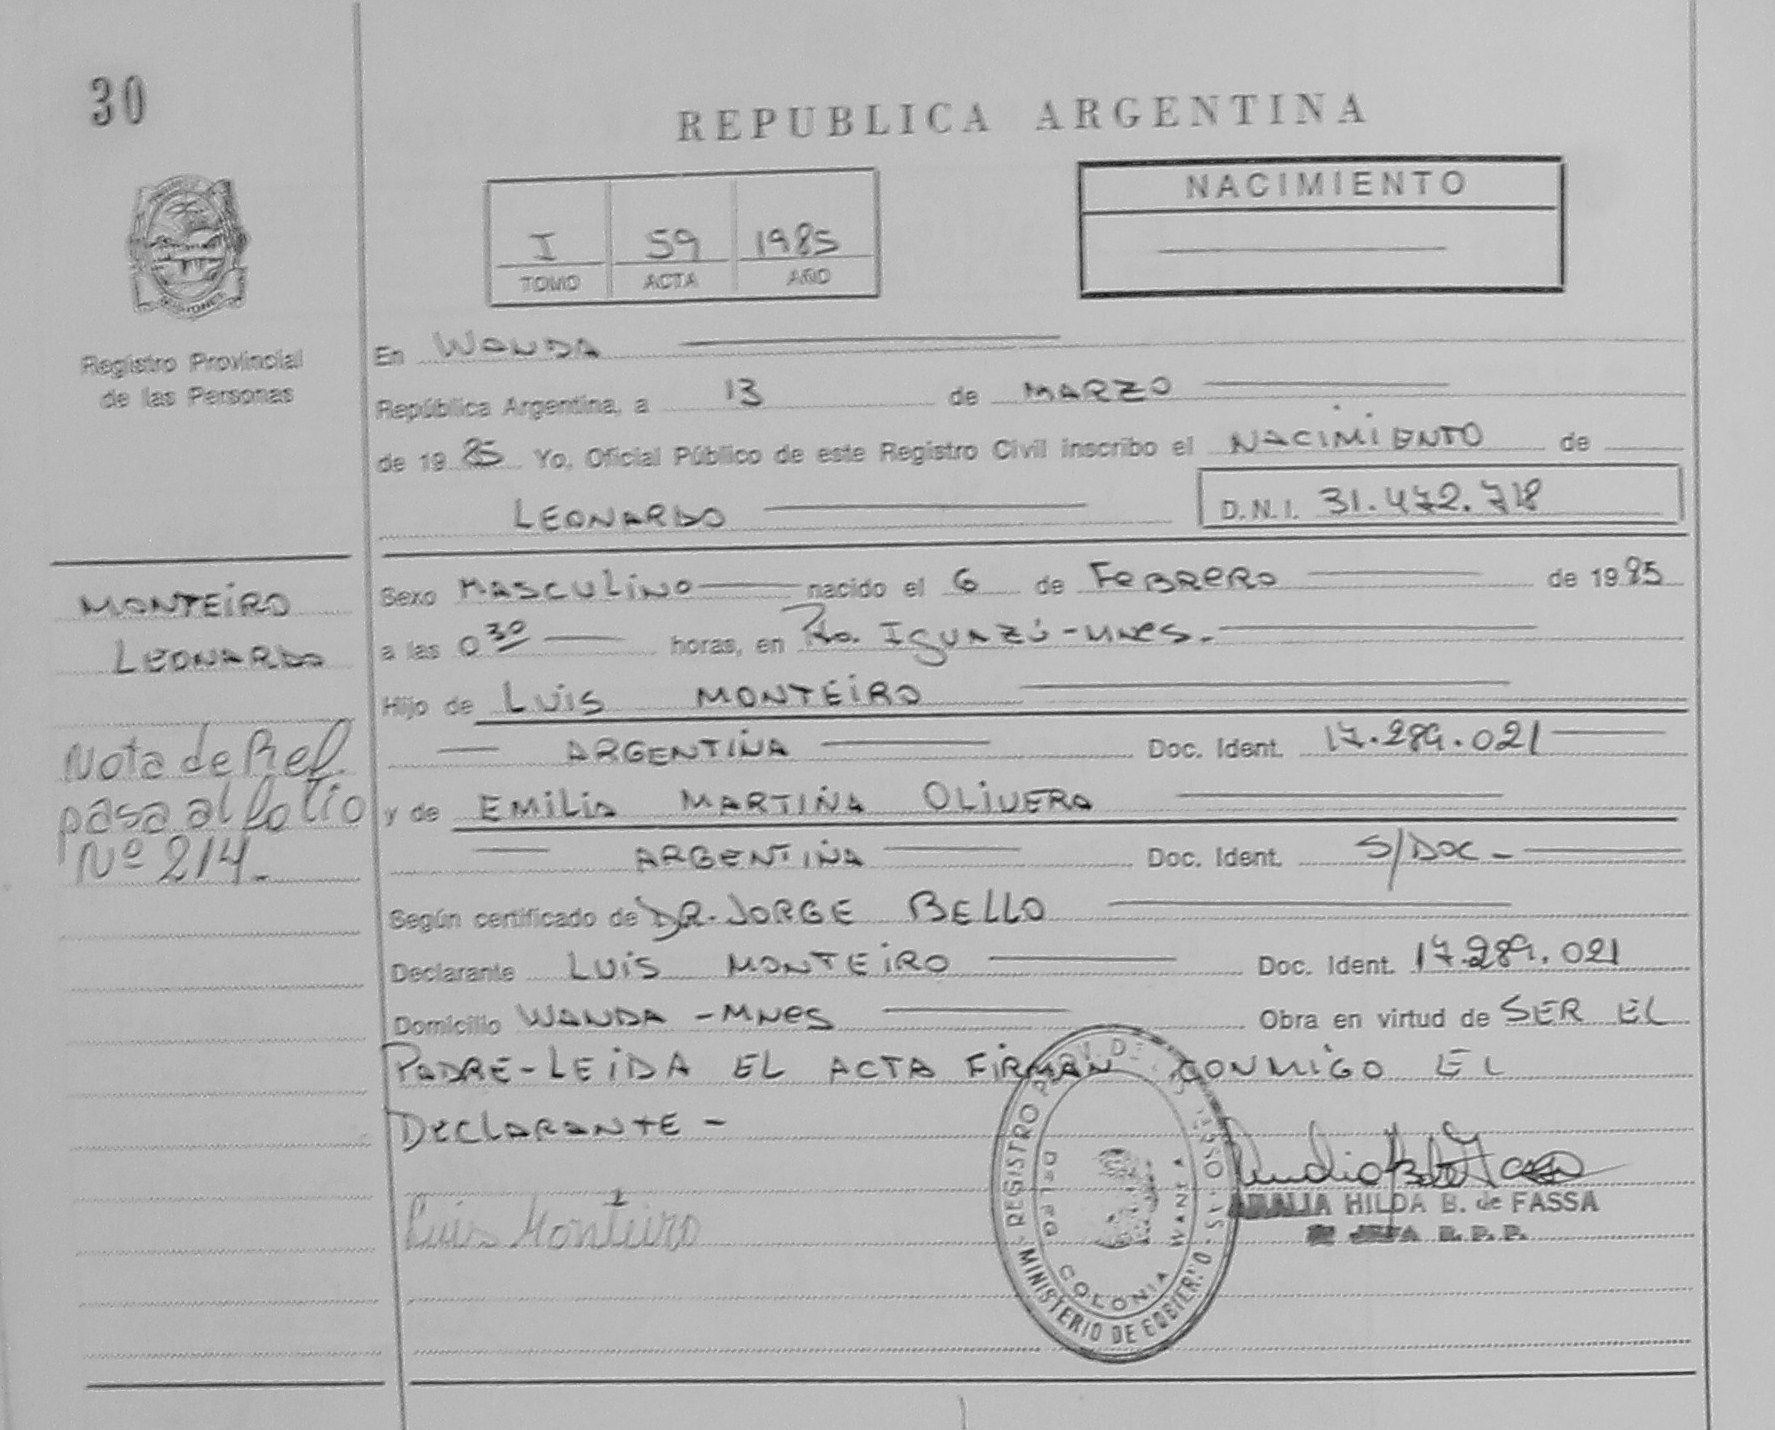 30
REPUBLICA ARGENTINA
NACIMIENTO
I 59 1985
TOMO ACTA AÑO
MISIONES
Registro Provincial
de las Personas
En WANDA
República Argentina, a 13 de MARZO
de 19 85 Yo, Oficial Público de este Registro Civil inscribo el NACIMIENTO de
LEONARDO D.N.I. 31.472.718
MONTEIRO
LEONARDO
Nota de Ref.
pasa al folio
Nº 214.
Sexo MASCULINO nacido el 6 de FEBRERO de 1985
a las 0 30 horas, en Pto. IGUAZÚ-MNES.
Hijo de LUIS MONTEIRO
ARGENTINA Doc. Ident. 17.289.021
y de EMILIA MARTINA OLIVERA
ARGENTINA Doc. Ident. S/DOC -
Según certificado de DR. JORGE BELLO
Declarante LUIS MONTEIRO Doc. Ident. 17.289.021
Domicilio WANDA - MNES Obra en virtud de SER EL
PADRE - LEIDA EL ACTA FIRMAN CONMIGO EL
DECLARANTE -
Luis Monteiro
REGISTRO PROV. DE LAS PERSONAS
MINISTERIO DE GOBIERNO
COLONIA WANDA
AMALIA HILDA B. de FASSA
JEFA R. P. P.